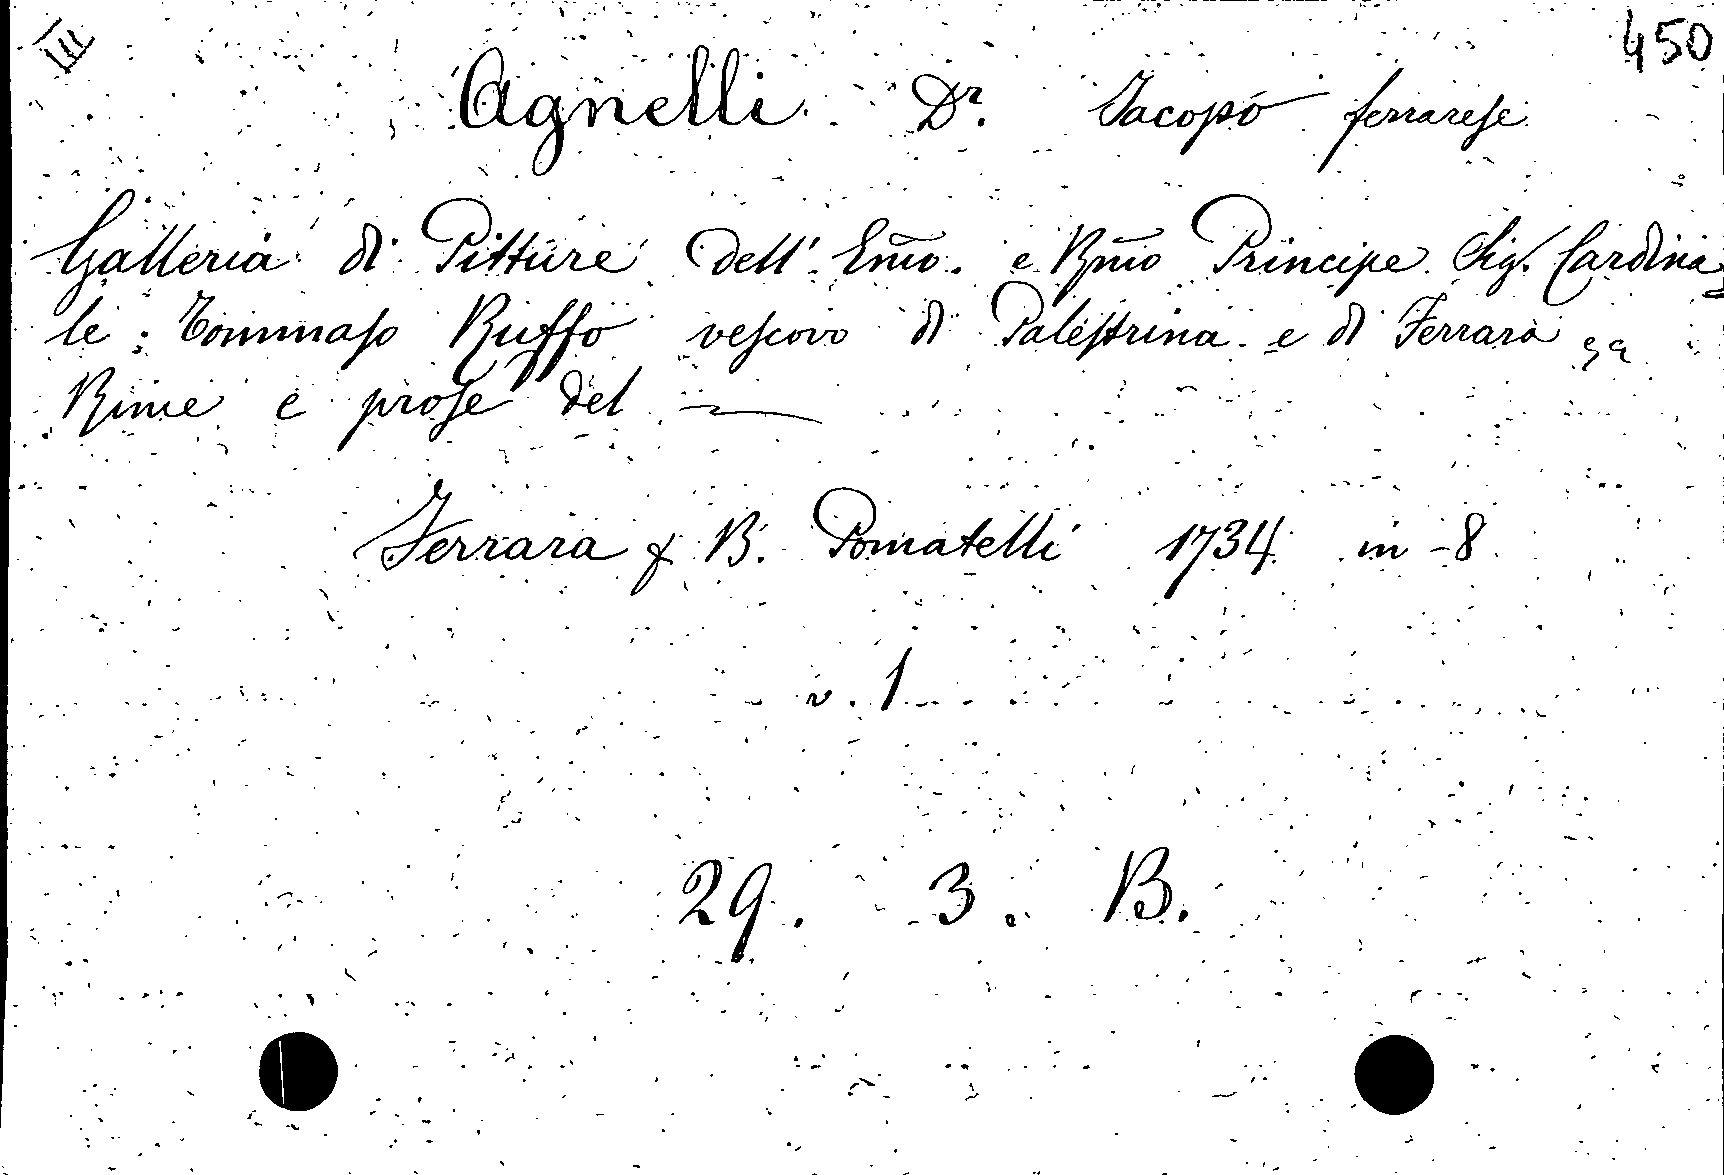 III 450
Agnelli Dr. Jacopo ferrarese
Galleria di Pitture dell' Emo. e Rmo Principe Sig. Cardina
le Tommaso Ruffo vescovo di Palestrina e di Ferrara
Rime e prose del —
Ferrara B. Pomatelli 1734 in-8
v. 1
29. 3. B.